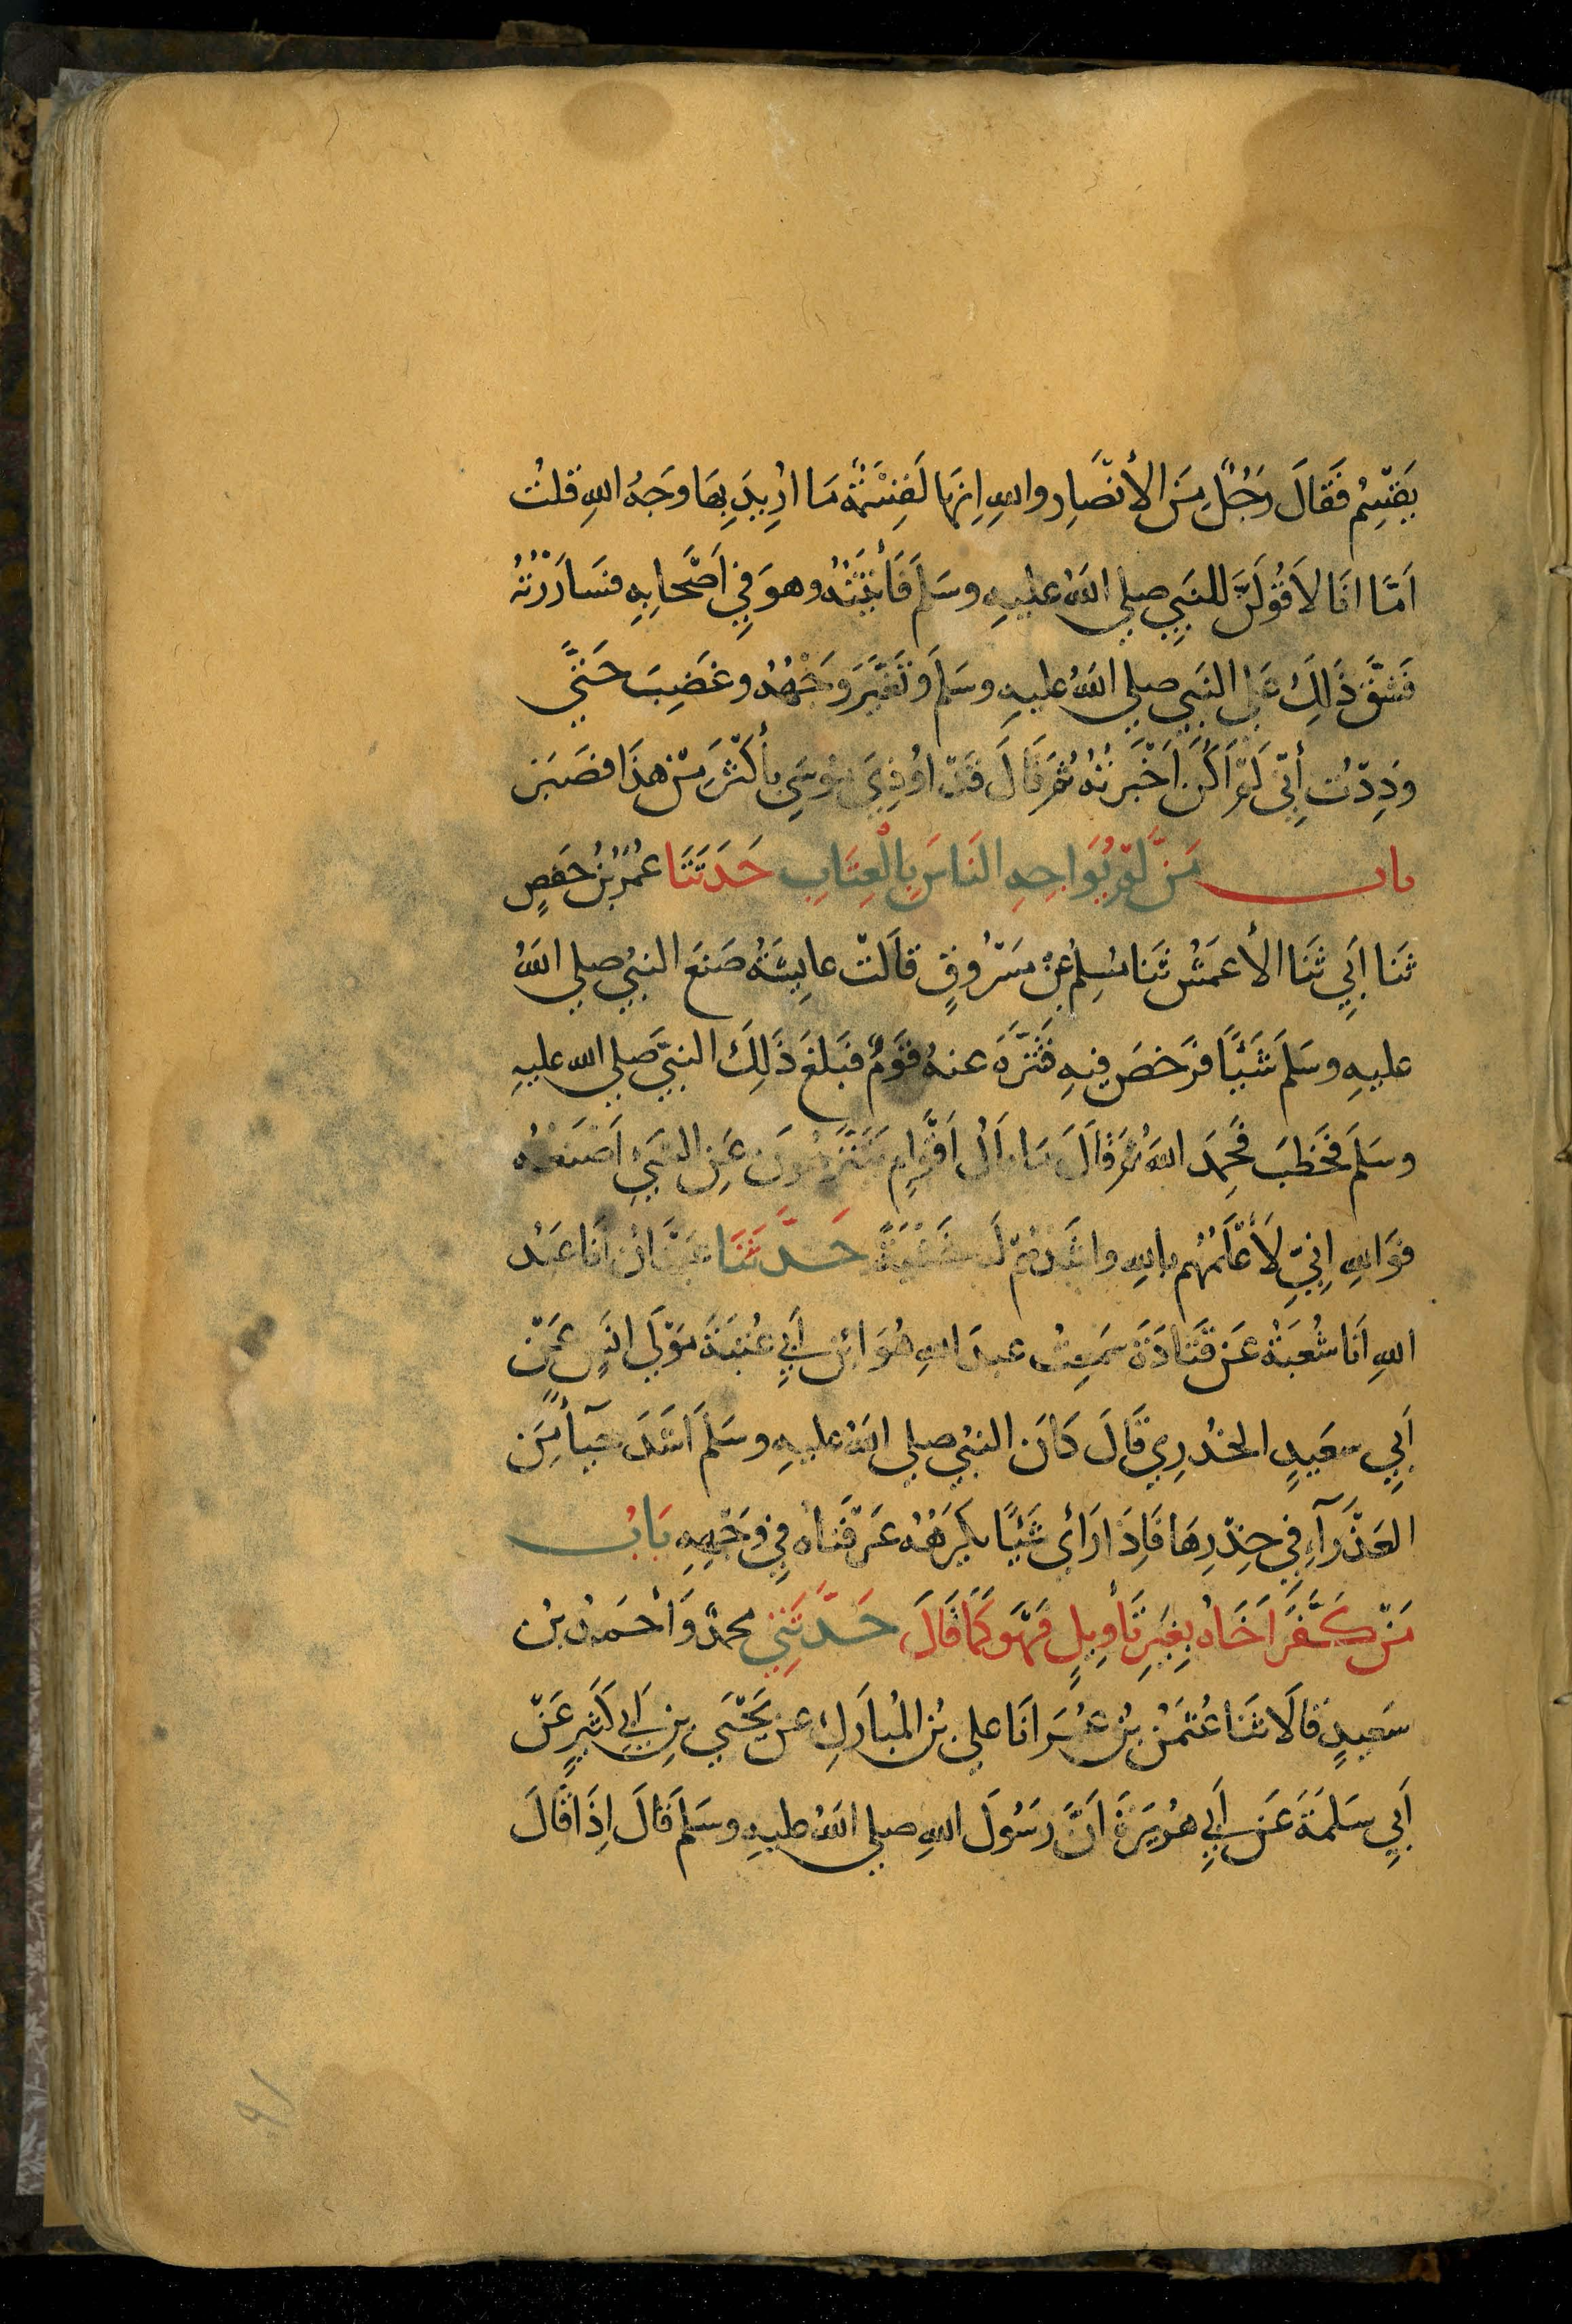 يَقْسِمُ فَقَالَ رَجُلٌ مِنَ الأنصَارِ واللهِ اِنهَا لَقِسْمَةٌ مَا اُرِيدَ بِهَا وَجهُ اللهِ قلتُ
اَمَّا اَنَا لاَقُولَنَّ للنبيِ صلى اللهُ عليهِ وسَلمَ فَأتَيْتُهُ وهوَ فِي اَصْحَابِهِ فسَارَرْتُهُ
فَشَقَّ ذَلِكَ عَلى النبيِ صلى اللهُ عليهِ وسَلمَ وَتَغَيَّرَ وَجْهُهُ وغَضِبَ حَتَّى
وَدِدْتُ أنِّي لَمْ اَكُن اَخْبَرتُهُ ثُمَ قَالَ قَدْ اُوذِيَ مُوسَى بأكْثَرَ مِنْ هذَا فصَبَرَ
باب مَنْ لَمْ يُوَاجِهِ النَاسَ بِالْعِتَابِ حَدَثَنَا عُمَرُ بْنُ حَفصٍ
ثَنَا اَبِي ثَنَا الأعمَشُ ثَنَا مُسلِمٌ عَنْ مَسْرُوقٍ قَالَتْ عايشَةُ صَنَعَ النبيُ صلى اللهُ
عليهِ وسَلمَ شَيْئًا فرَخصَ فيهِ فَتَنَزَّهَ عنهُ قَوْمٌ فبَلغَ ذَلِكَ النبيَّ صلى الله عليهِ
وسَلمَ فخَطَبَ فَحَمِدَ اللهَ ثُمَ قَالَ مَا بَالُ اَقْوَامٍ يَتَنَزَهُونَ عَنِ الشَيْءِ اَصْنَعُهُ
فوَاللهِ اِنِيّ لَأَعْلَمُهُم باللهِ واشَدهُمْ لَهُ خَشْيَةً حَدَّثَنَا عَبْدَانُ اَنَا عَبْدُ
اللهِ اَنَا شُعْبَةُ عَن قَتَادَةَ سَمِعتُ عبدَ اللهِ هُوَ ابْن أبِي عُتْبَةَ مَوْلَى انَسٍ عَنْ
اَبِي سعَيدٍ الخُدْرِي قَالَ كَانَ النبيُ صلى اللهُ عليهِ وسَلمَ اَشَدَ حيَآءً مِنَ
العَذْرَآءِ فِي خِدْرِهَا فَاِذَا رَأى شَيْئًا يكرَهُهُ عَرَفْنَاهُ فِي وَجْهِهِ بَابُ
مَنْ كَفَّرَ اَخَاهُ بِغَيرِ تَأوِيلٍ فَهْوَ كَمَا قَالَ حَدَّثَنِي محمدٌ وَأحمَدُ بنُ
سَعيدٍ قَالَا ثَنَا عُثمَنُ بنُ عُمَرَ اَنَا علي بْنُ المُبارَكِ عن يَحْيَى بنِ اَبِي كَثيرٍ عَنْ
اَبِي سَلَمَةَ عَن أبِي هُرَيرَةَ اَنَّ رَسُولَ اللهِ صلى اللهُ عليهِ وسَلمَ قَالَ اِذَا قَالَ